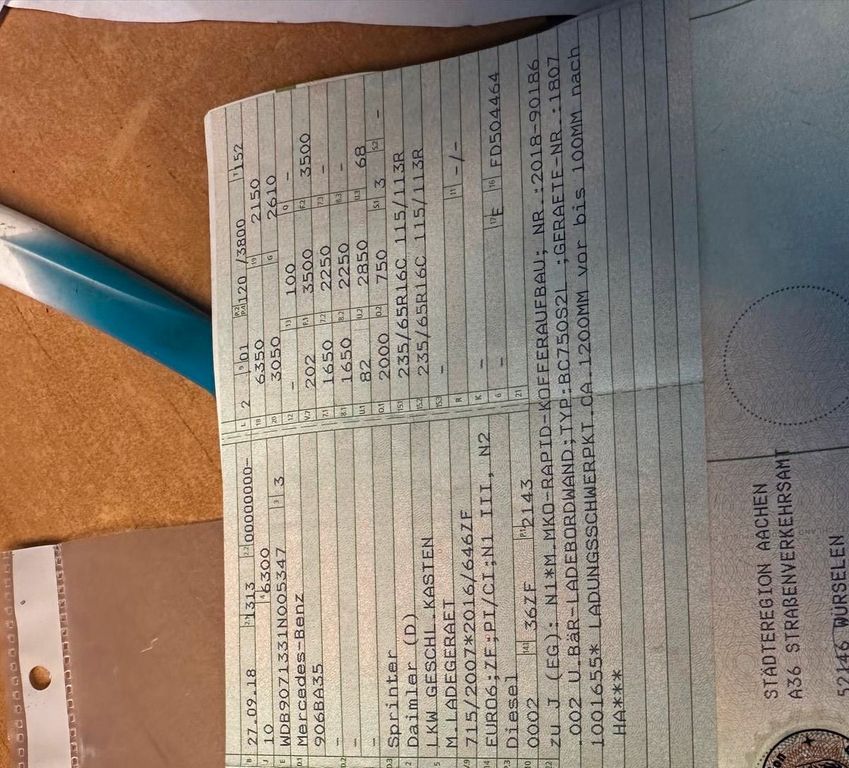 B 27.09.18 2.1 1313 2.2 00000000-
J 10 4 6300
E WDB9071331N005347 3 3
D.1 Mercedes-Benz
906BA35
D.2 -
-
-
D.3 Sprinter
2 Daimler (D)
5 LKW GESCHL.KASTEN
M.LADEGERAET
V.9 715/2007*2016/646ZF
14 EURO6;ZF;PI/CI;N1 III, N2
P.3 Diesel
10 0002 14.1 36ZF P.1 2143
L 2 9 01 P.2 P.4 120 /3800 T 152
18 6350 19 2150
20 3050 G 2610
12 - 13 100 Q -
V.7 202 F.1 3500 F.2 3500
7.1 1650 7.2 2250 7.3 -
8.1 1650 8.2 2250 8.3 -
U.1 82 U.2 2850 U.3 68
O.1 2000 O.2 750 S.1 3 S.2 -
15.1 235/65R16C 115/113R
15.2 235/65R16C 115/113R
15.3 -
R - 11 -/-
K -
6 - 17 E 16 FD504464
21
22 zu J (EG): N1*M.MKO-RAPID-KOFFERAUFBAU; NR.:2018-90186
.002 U.BÄR-LADEBORDWAND;TYP:BC750S2L ;GERAETE-NR.:1807
1001655* LADUNGSSCHWERPKT.CA.1200MM vor bis 100MM nach
HA***
STÄDTEREGION AACHEN
A36 STRAßENVERKEHRSAMT
52146 WÜRSELEN